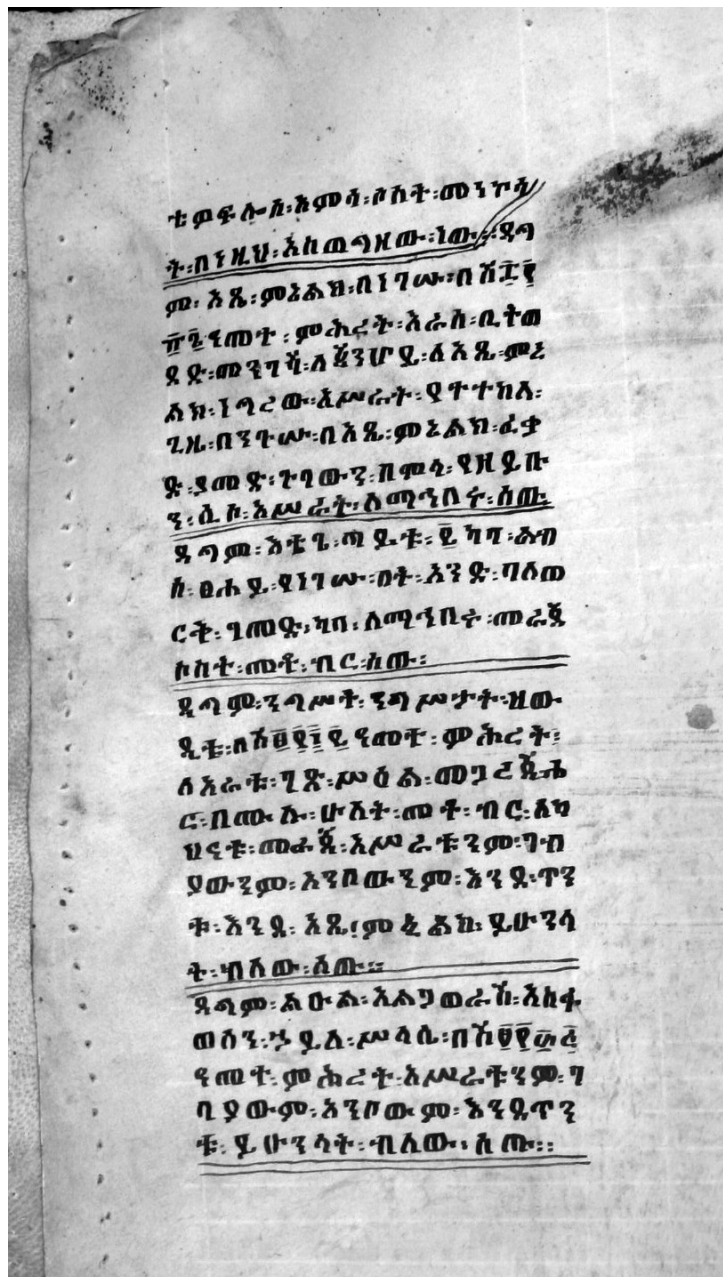 ቴዎፍሎስ፡እምሳ፡ሶስት፡መነኮሳ
ት፡በነዚህ፡እከጠጣዘው፡ነው።ዳግ
ም፡አጼ፡ምኔልክ፡በነገሡ፡በ
ዓመተ፡ምሕረት፡እራስ፡ቢትወ
ደድ፡መንገሻ፡ለጃንሆይ፡ለአጼ፡ምኔ
ልክ፡ነግረው፡አሥራት፡የተተከለ፡
ጊዜ፡በንጉሡ፡በአጼ፡ምኔልክ፡ፈቃ
ድ፡ያመድ፡ጉባውን፡የዘይቡ
ን፡ሲሶ፡አሥራት፡ለማኅበሩ፡ሰጡ
ዳግም፡እቴጌ፡ጣይቱ፡፪ካባ፡ልብ
ሰ፡ፀሐይ፡የነገሡ፡ዕት፡አንድ፡ባለወ
ርቅ፡ግመጃ፡ካባ፡ለማኅበሩ፡መራጃ
ሶስት፡መቶ፡ብር፡ሰጡ፡
ዳግም፡ንግሥት፡ንግሥታት፡ዘው
ዲቱ፡በሽ፱፻፲፪ዓመተ፡ምሕረት፡
ለአራቱ፡ገጽ፡ሥዕል፡መጋረጃ፡ሔ
ር፡በሙሉ፡ሁለት፡መቶ፡ብር፡ለካ
ህናቱ፡መራጃ፡አሥራቱንም፡ገብ
ያውንም፡አንሶውንም፡እንደ፡ጥን
ቱ፡እንደ፡አጼ፡ምኒልክ፡ይሁንላ
ት፡ብለው፡ሰጡ።
ዳግም፡ልዑል፡አልጋ፡ወራሽ፡አስፋ
ወሰን፡ኃይለ፡ሥላሴ፡በሽ፱፻
ዓመተ፡ምሕረት፡አሥራቱንም፡ገ
ቢያውም፡አንሶውም፡እንደጥን
ቱ፡ይሁንላት፡ብለው፡ሰጡ።